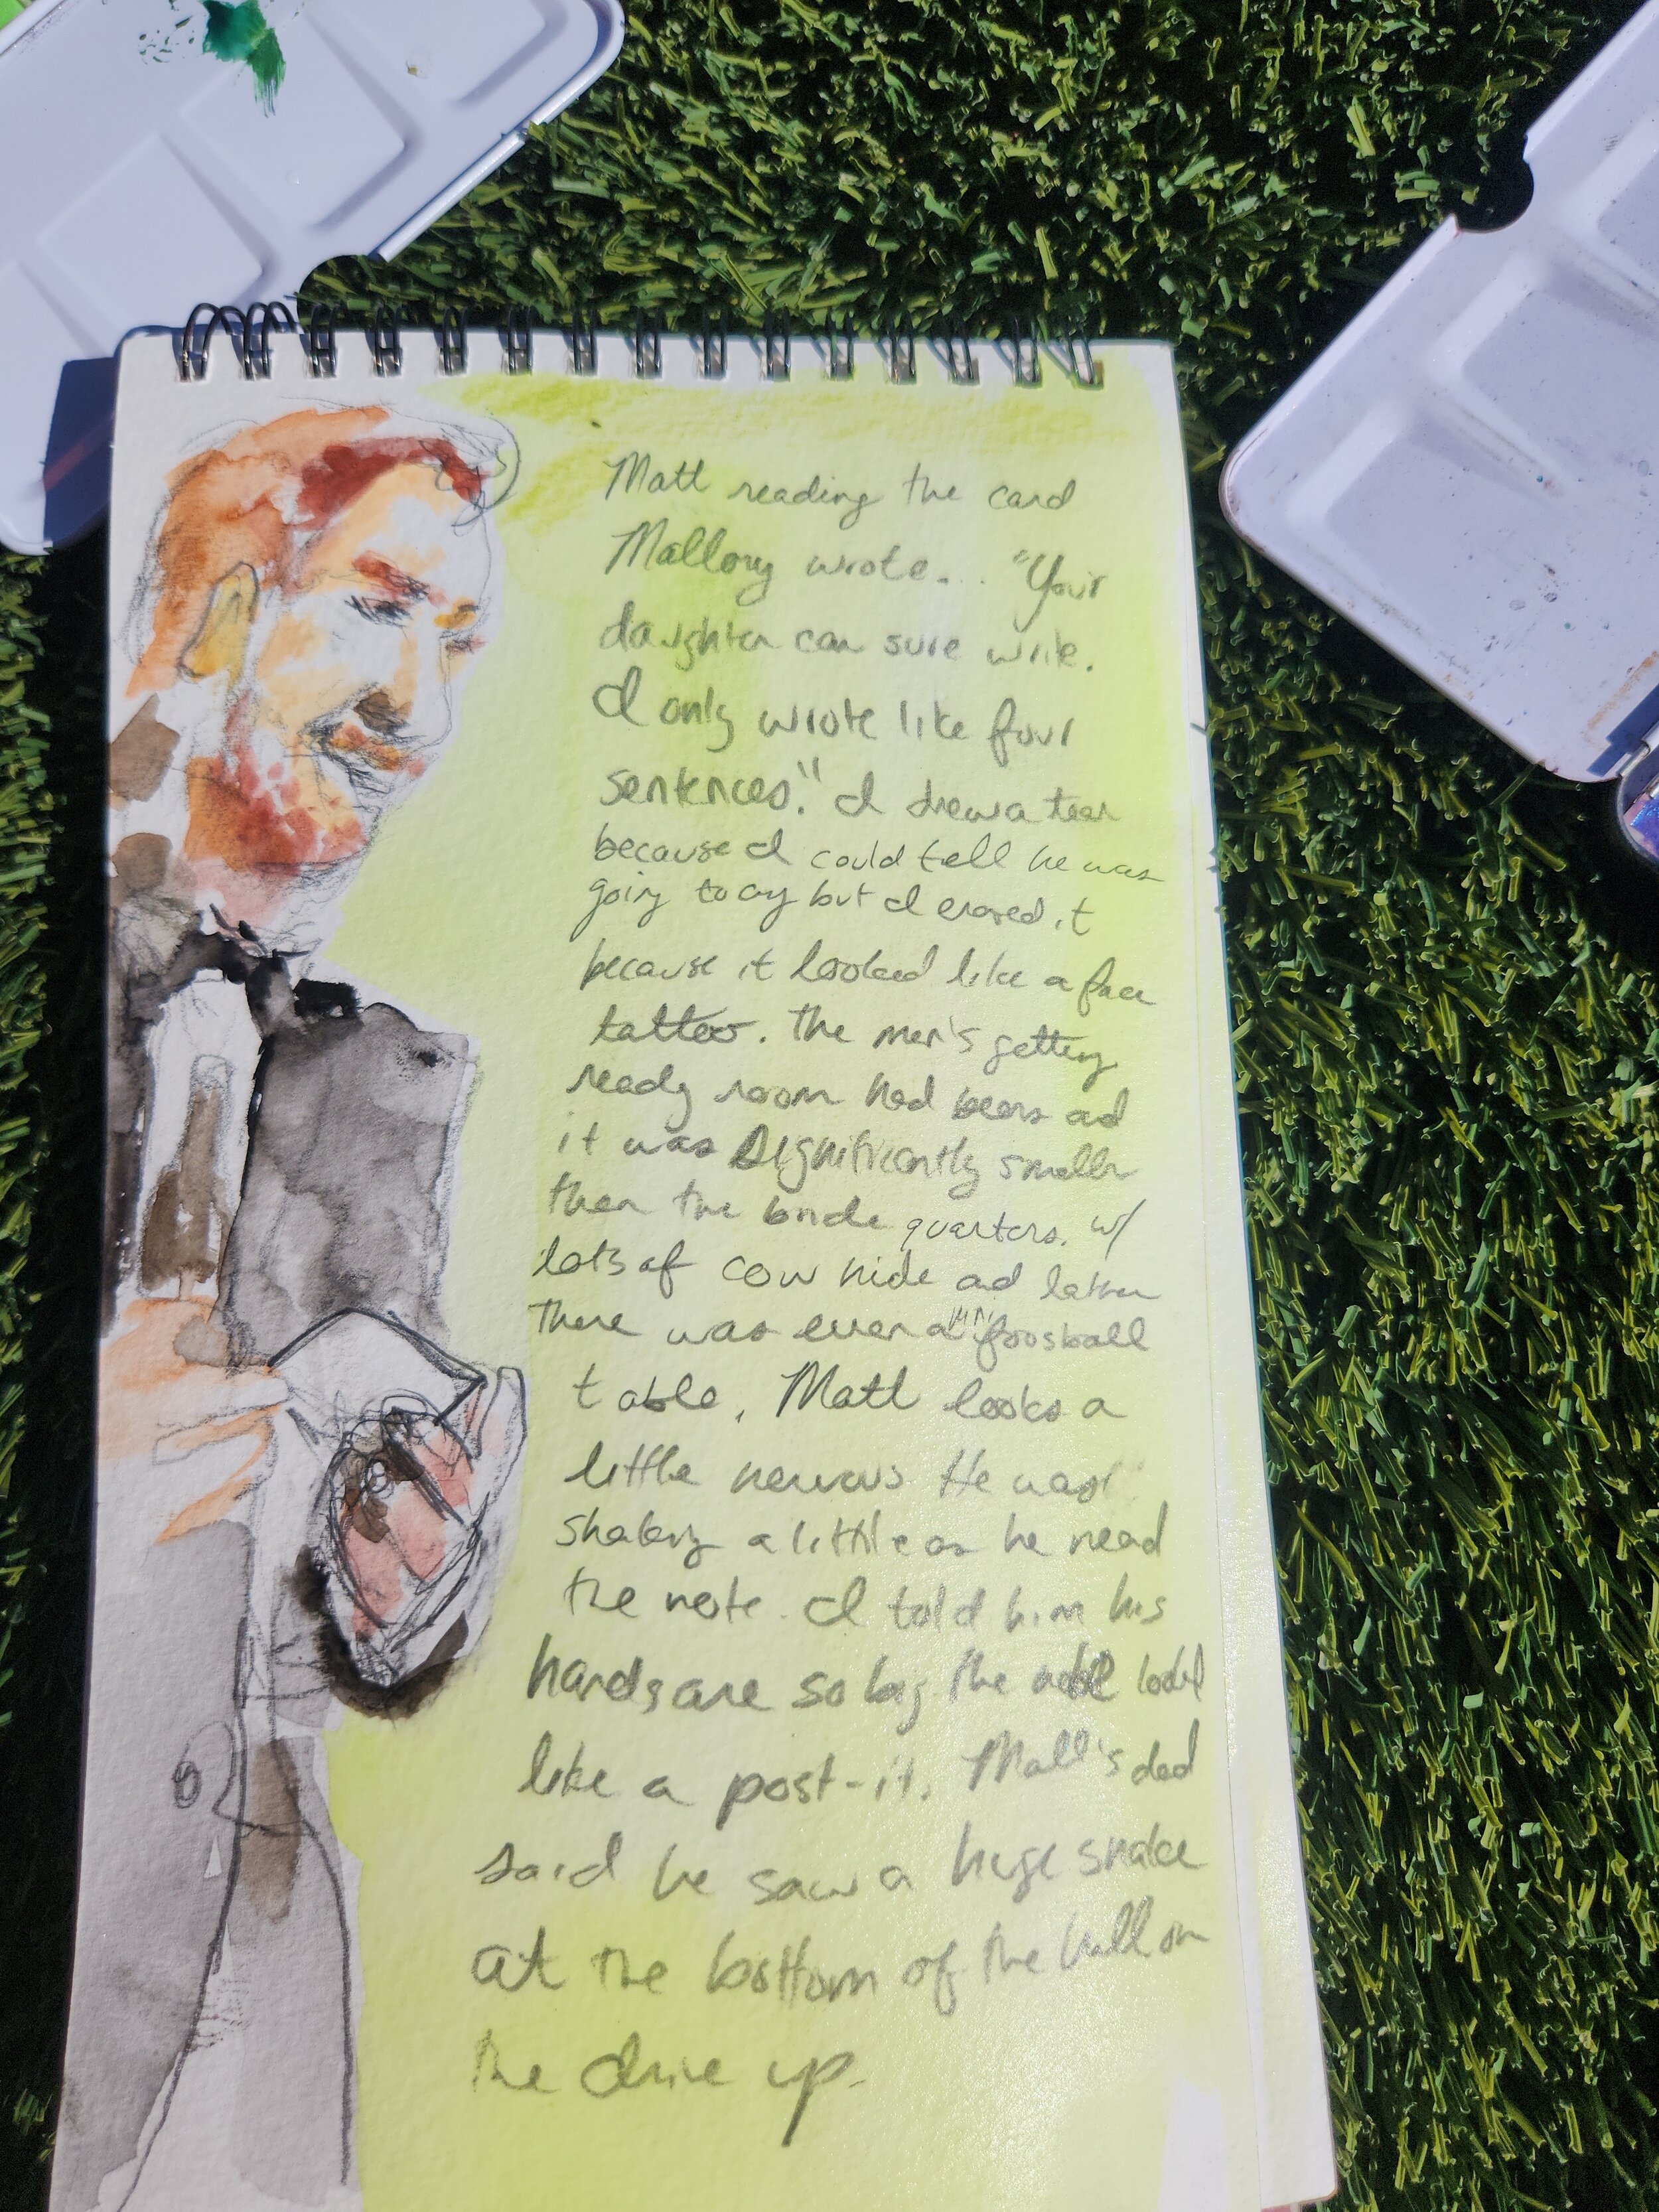 Matt reading the card
Mallory wrote... "Your
daughter can sure write.
I only wrote like four
sentences." I drew a tear
because I could tell he was
going to cry but I erased it
because it looked like a face
tattoo. The men's getting
ready room had beers ad
it was significantly smaller
then the bride quarters. w/
lots of cow hide ad leather
There was even a "mini" foosball
table. Matt looks a
little nervous He was
shaking a little as he read
the note. I told him his
hands are so big the note looked
like a post-it. Mall's dad
said he saw a huge snake
at the bottom of the hill on
the drive up.